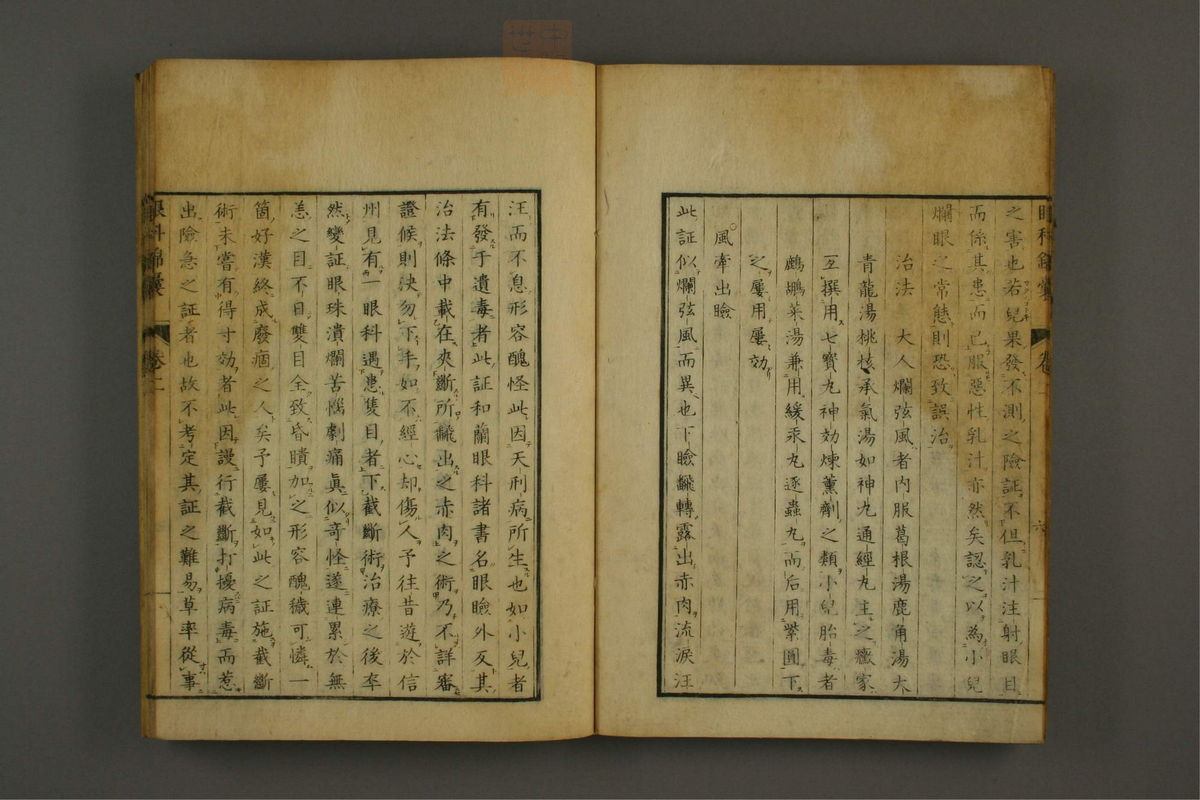 之害也若兒果發不測之險証不但乳汁注射眼目
而係其患而已服惡性乳汁亦然矣認之以為小兒
爛眼之常態則恐致誤治
治法 大人爛弦風者內服葛根湯鹿角湯大
青龍湯桃核承氣湯如神丸通經丸主之癥家
互撰用七寶丸神効煉薰劑之類小兒胎毒者
鷓鴣菜湯兼用緩汞丸逐蟲丸而后用紫圓下
之屢用屢効
風牽出瞼
此証似爛弦風而異也下瞼飜轉露出赤肉流淚汪
汪而不息形容醜怪此因天刑病所生也如小兒者
有發于遺毒者此証和蘭眼科諸書名眼瞼外反其
治法條中載在夾斷所飜出之赤肉之術乃不詳審
證候則決勿下手如不經心却傷人予往昔遊於信
州見有一眼科遇患隻目者下截斷術治療之後卒
然變証眼珠潰爛苦惱劇痛眞似奇怪遂連累於無
恙之目不日雙目全致昏瞶加之形容醜穢可憐一
箇好漢終成廢痼之人矣予屢見如此之証施截斷
術未嘗有得寸効者此因謾行截斷打擾病毒而惹
出險急之証者也故不考定其証之難易草率從事
眼科錦囊 卷二